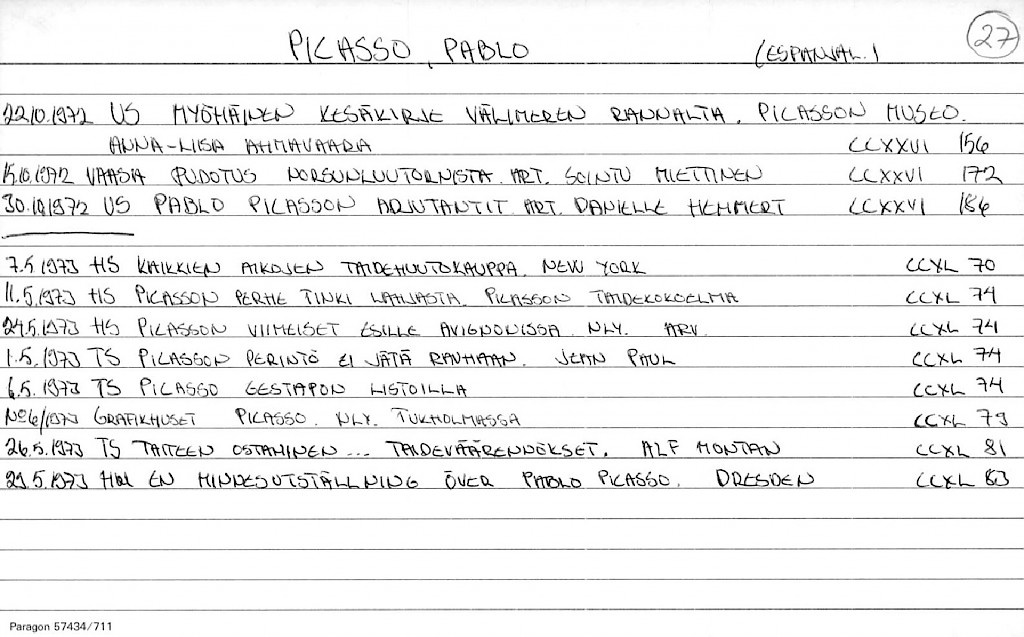 27
PICASSO, PABLO (ESPANJAL.)
22.10.1972 US MYÖHÄINEN KESÄKIRJE VÄLIMEREN RANNALTA. PICASSON MUSEO.
ANNA-LIISA AHMAVAARA CCXXVI 156
15.10.1972 VAASA PUDOTUS NORSUNLUUTORNISTA. ART. SOINTU MIETTINEN CCXXVI 172
30.10.1972 US PABLO PICASSON ARJUTANTIT. ART. DANIELLE HEMMERT CCXXVI 186
7.5.1973 HS KAIKKIEN AIKOJEN TAIDEHUUTOKAUPPA. NEW YORK CCXL 70
11.5.1973 HS PICASSON PERHE TINKI LAHJASTA. PICASSON TAIDEKOKOELMA CCXL 74
24.5.1973 HS PICASSON VIIMEISET ESILLE AVIGNONISSA. NLY. ARV. CCXL 74
1.5.1973 TS PICASSON PERINTÖ EI JÄTÄ RAUHAAN. JEAN PAUL CCXL 74
6.5.1973 TS PICASSO GESTAPON LISTOILLA CCXL 74
No 6/1973 GRAFIKHUSET PICASSO. NLY. TUKHOLMASSA CCXL 79
26.5.1973 TS TAITEEN OSTAMINEN... TAIDEVÄÄRENNÖKSET. ALF MONTAN CCXL 81
29.5.1973 Hbl EN MINNESUTSTÄLLNING ÖVER PABLO PICASSO. DRESDEN CCXL 83
Paragon 57434/711